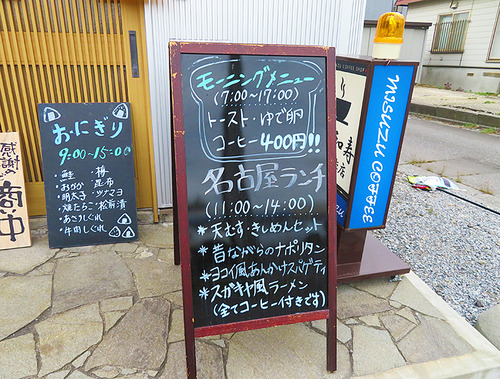 モーニングメニュー
(7:00〜17:00)
トースト・ゆで卵
コーヒー 400円!!
名古屋ランチ
(11:00〜14:00)
*天むすきしめんセット
*昔ながらのナポリタン
*ヨコイ風あんかけスパゲティ
*スガキヤ風ラーメン
(全てコーヒー付きです)
おにぎり
9:00〜15:00
・鮭 ・梅
・おかか 昆布
・明太子 ・ツナマヨ
・焼たらこ ・松前漬
・あさりしぐれ
・牛肉しぐれ
感謝の
商中
misuzu coffee
COFFEE SHOP